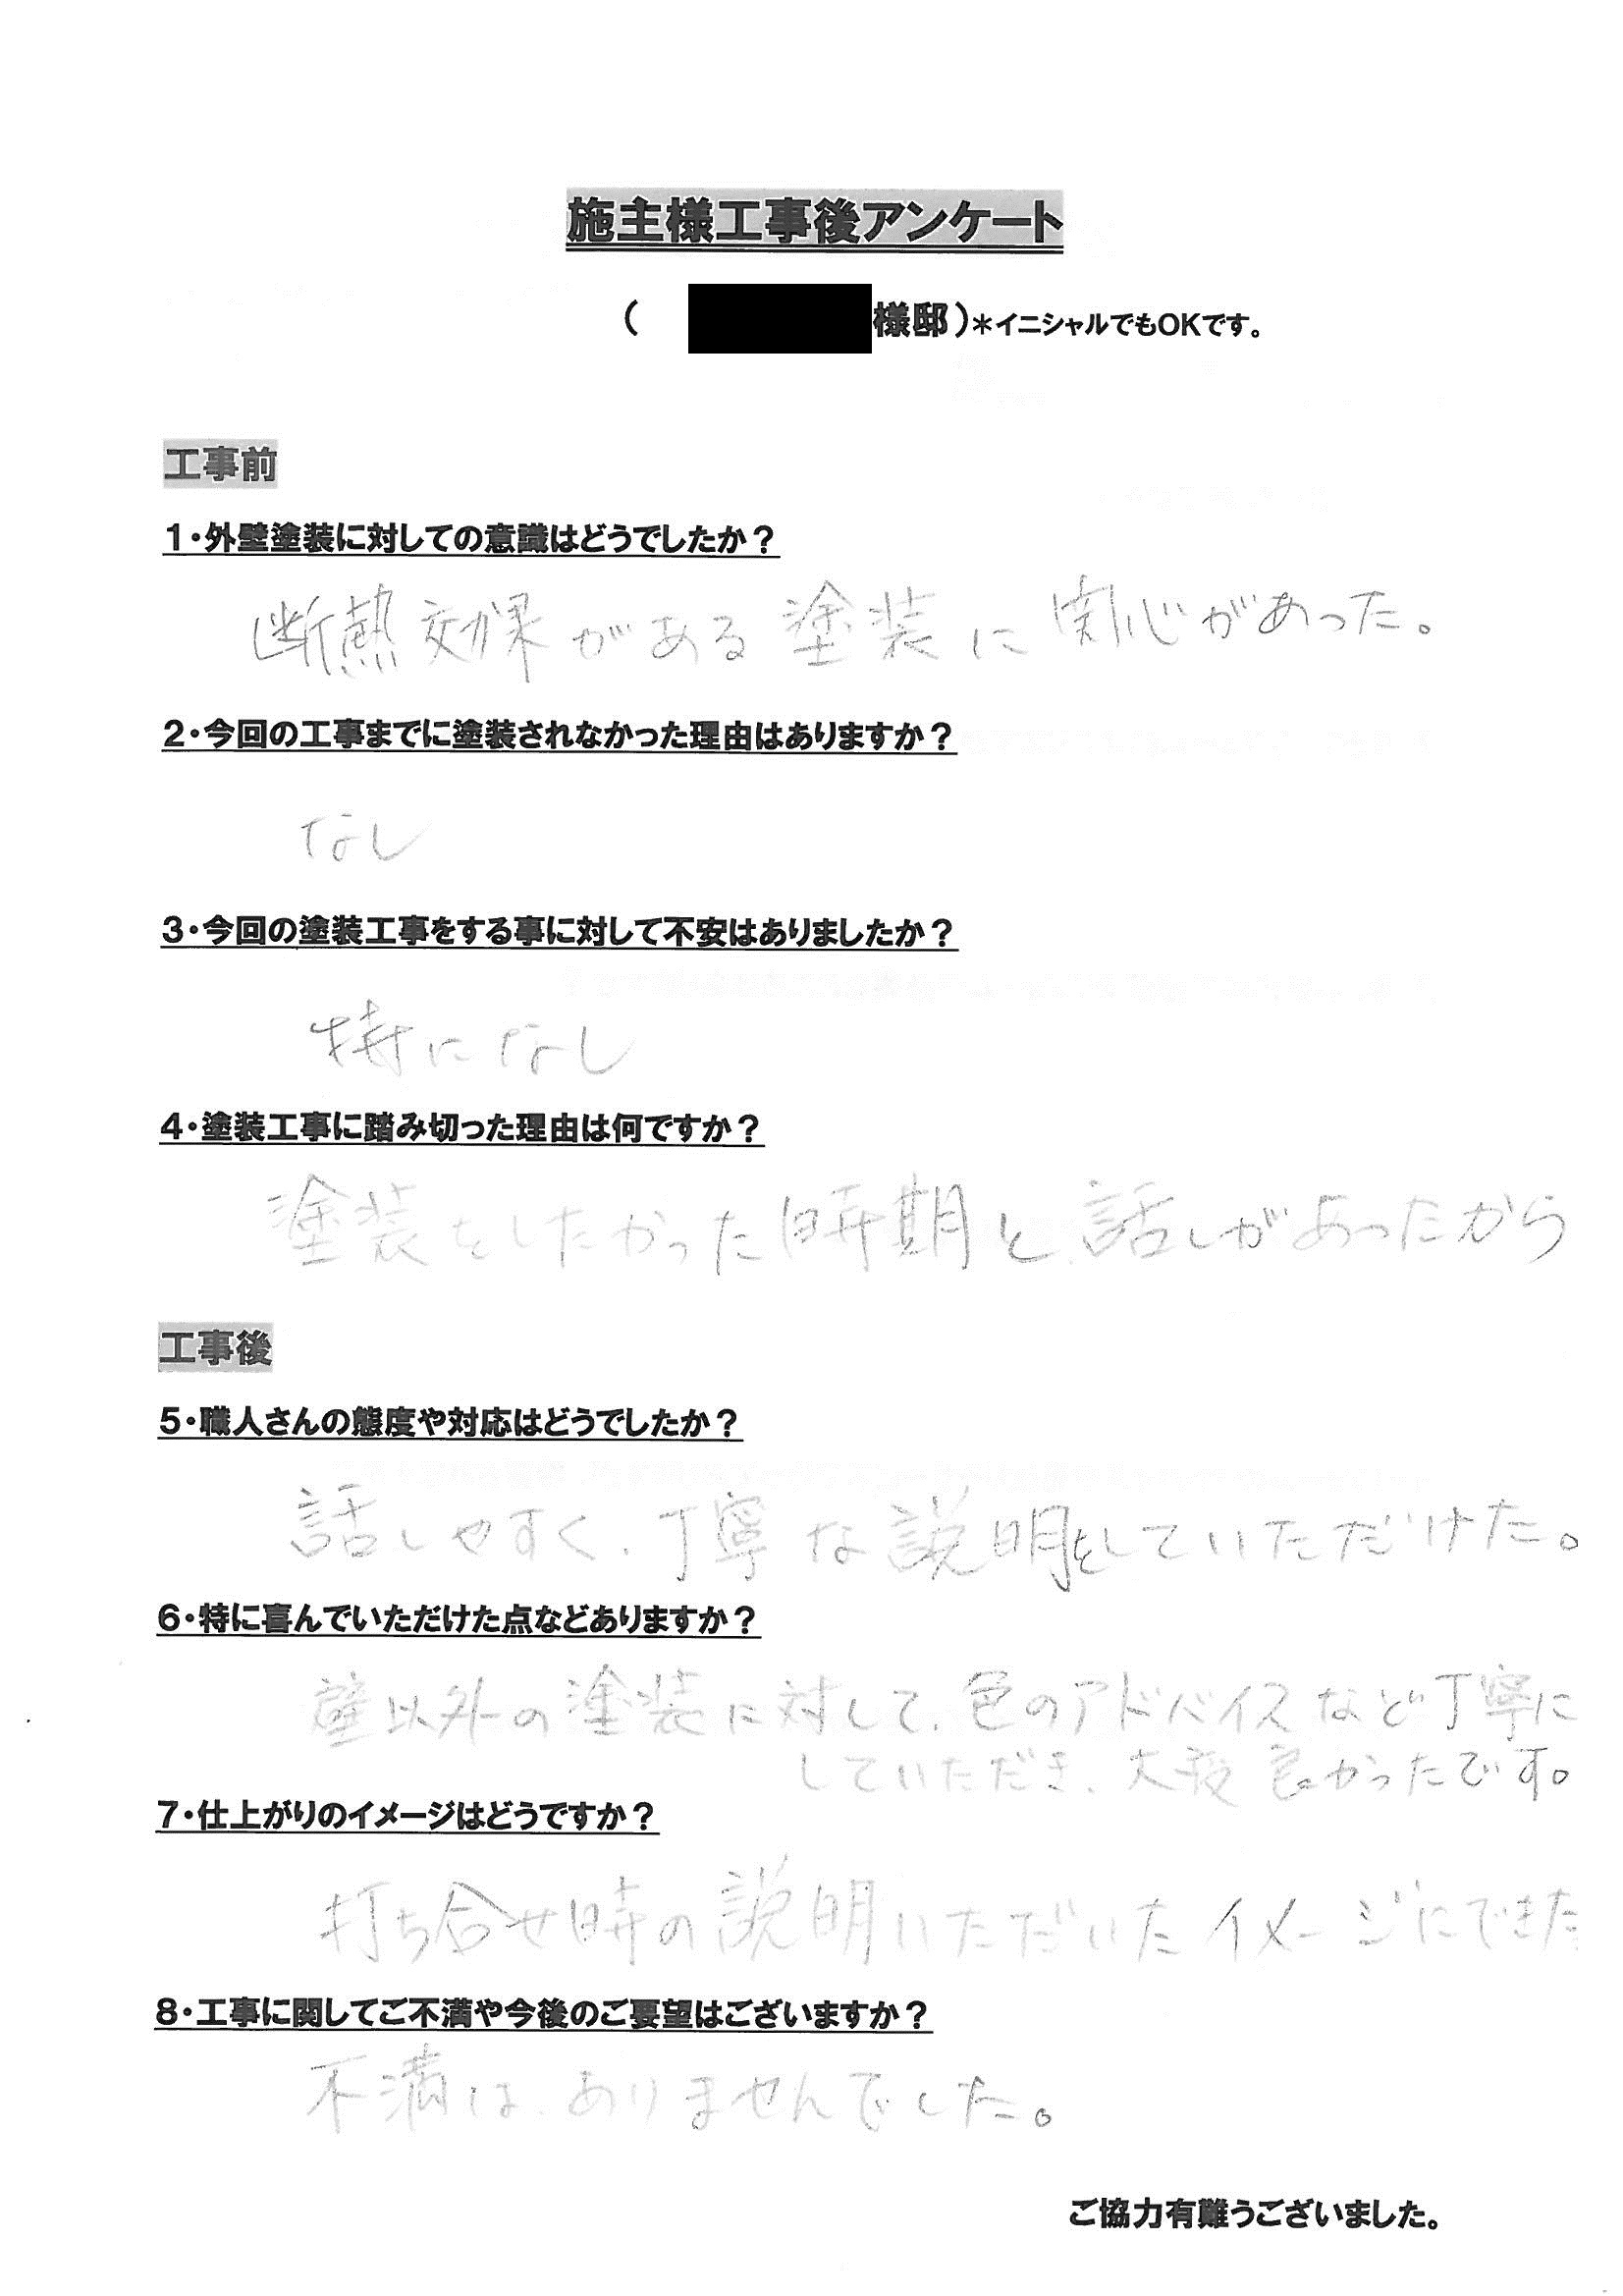 施主様工事後アンケート
( 様邸)*イニシャルでもOKです。
工事前
1・外壁塗装に対しての意識はどうでしたか?
断熱効果がある塗装に関心があった。
2・今回の工事までに塗装されなかった理由はありますか?
なし
3・今回の塗装工事をする事に対して不安はありましたか?
特になし
4・塗装工事に踏み切った理由は何ですか?
塗装をしたかった時期と、話しがあったから
工事後
5・職人さんの態度や対応はどうでしたか?
話しやすく、丁寧な説明をしていただけた。
6・特に喜んでいただけた点などありますか?
壁以外の塗装に対して、色のアドバイスなど丁寧に
していただき、大変良かったです。
7・仕上がりのイメージはどうですか?
打ち合せ時の説明いただいたイメージにできた
8・工事に関してご不満や今後のご要望はございますか?
不満は、ありませんでした。
ご協力有難うございました。